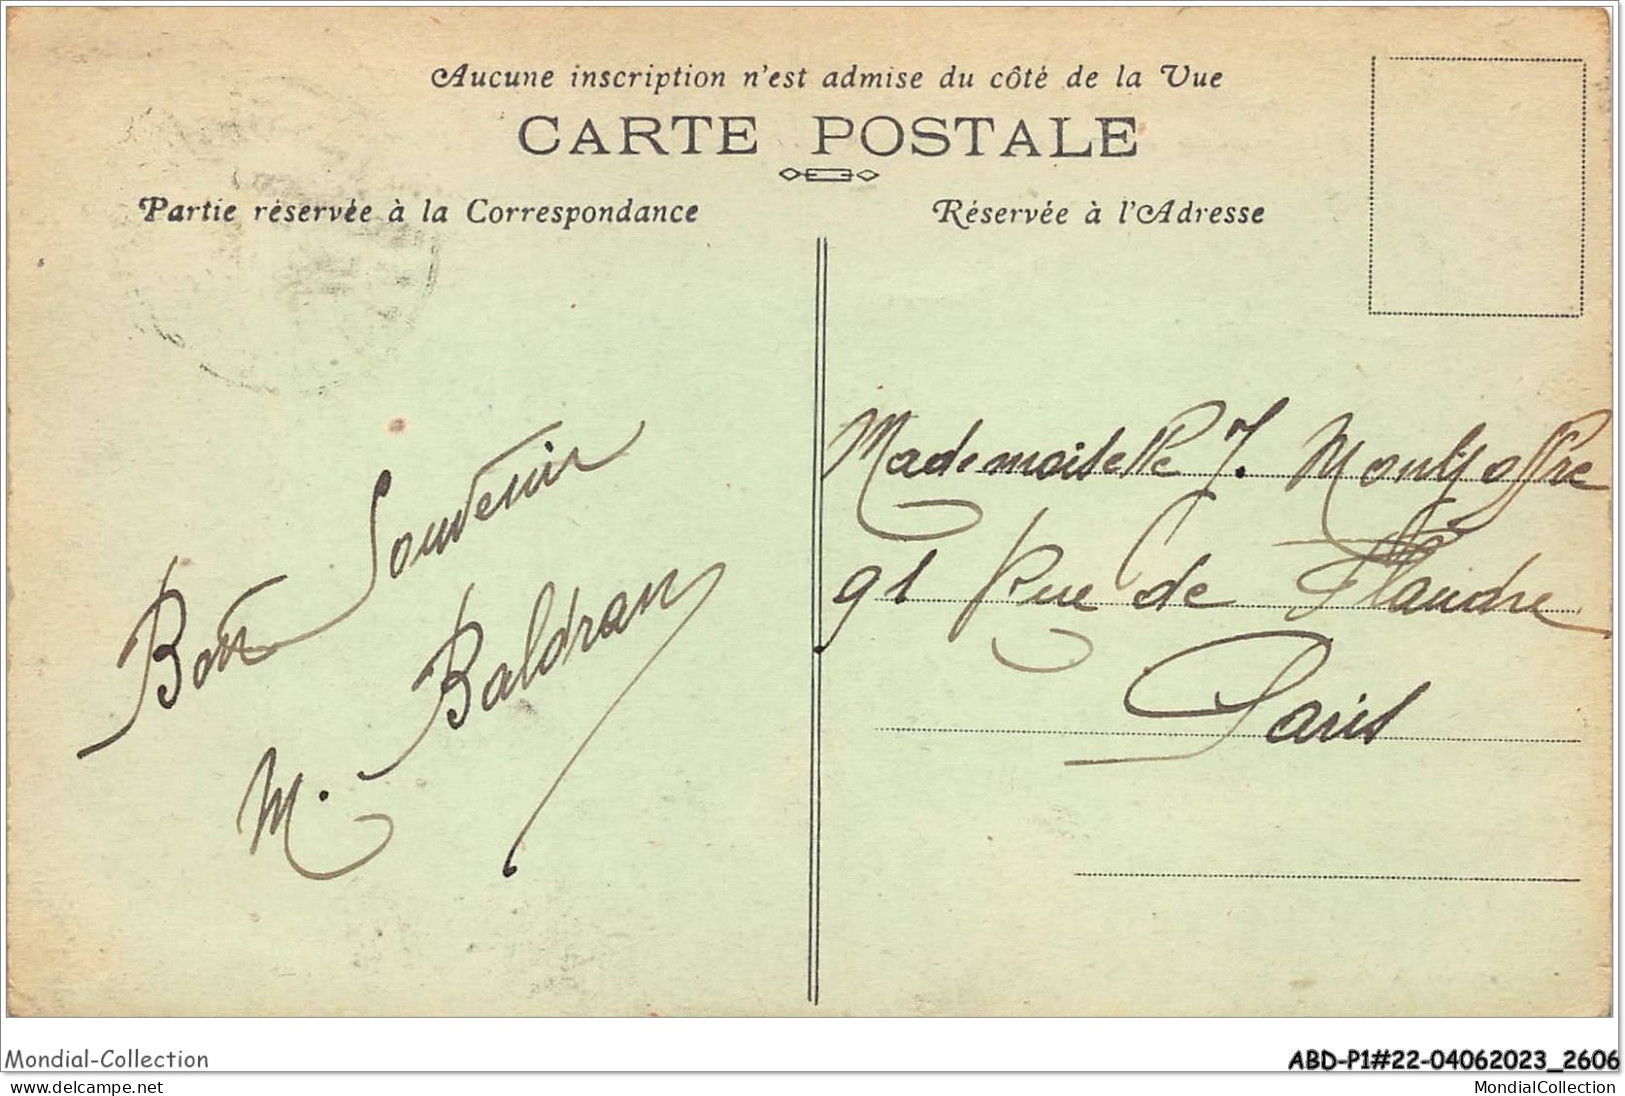 Aucune inscription n'est admise du côté de la Vue
CARTE POSTALE
Partie réservée à la Correspondance
Réservée à l'Adresse
Bon Souvenir
M. Baldran
Mademoiselle J. Montjoffre
91 Rue de Flandre
Paris
Mondial-Collection
ABD-P1#22-04062023_2606
MondialCollection
delcampe.net